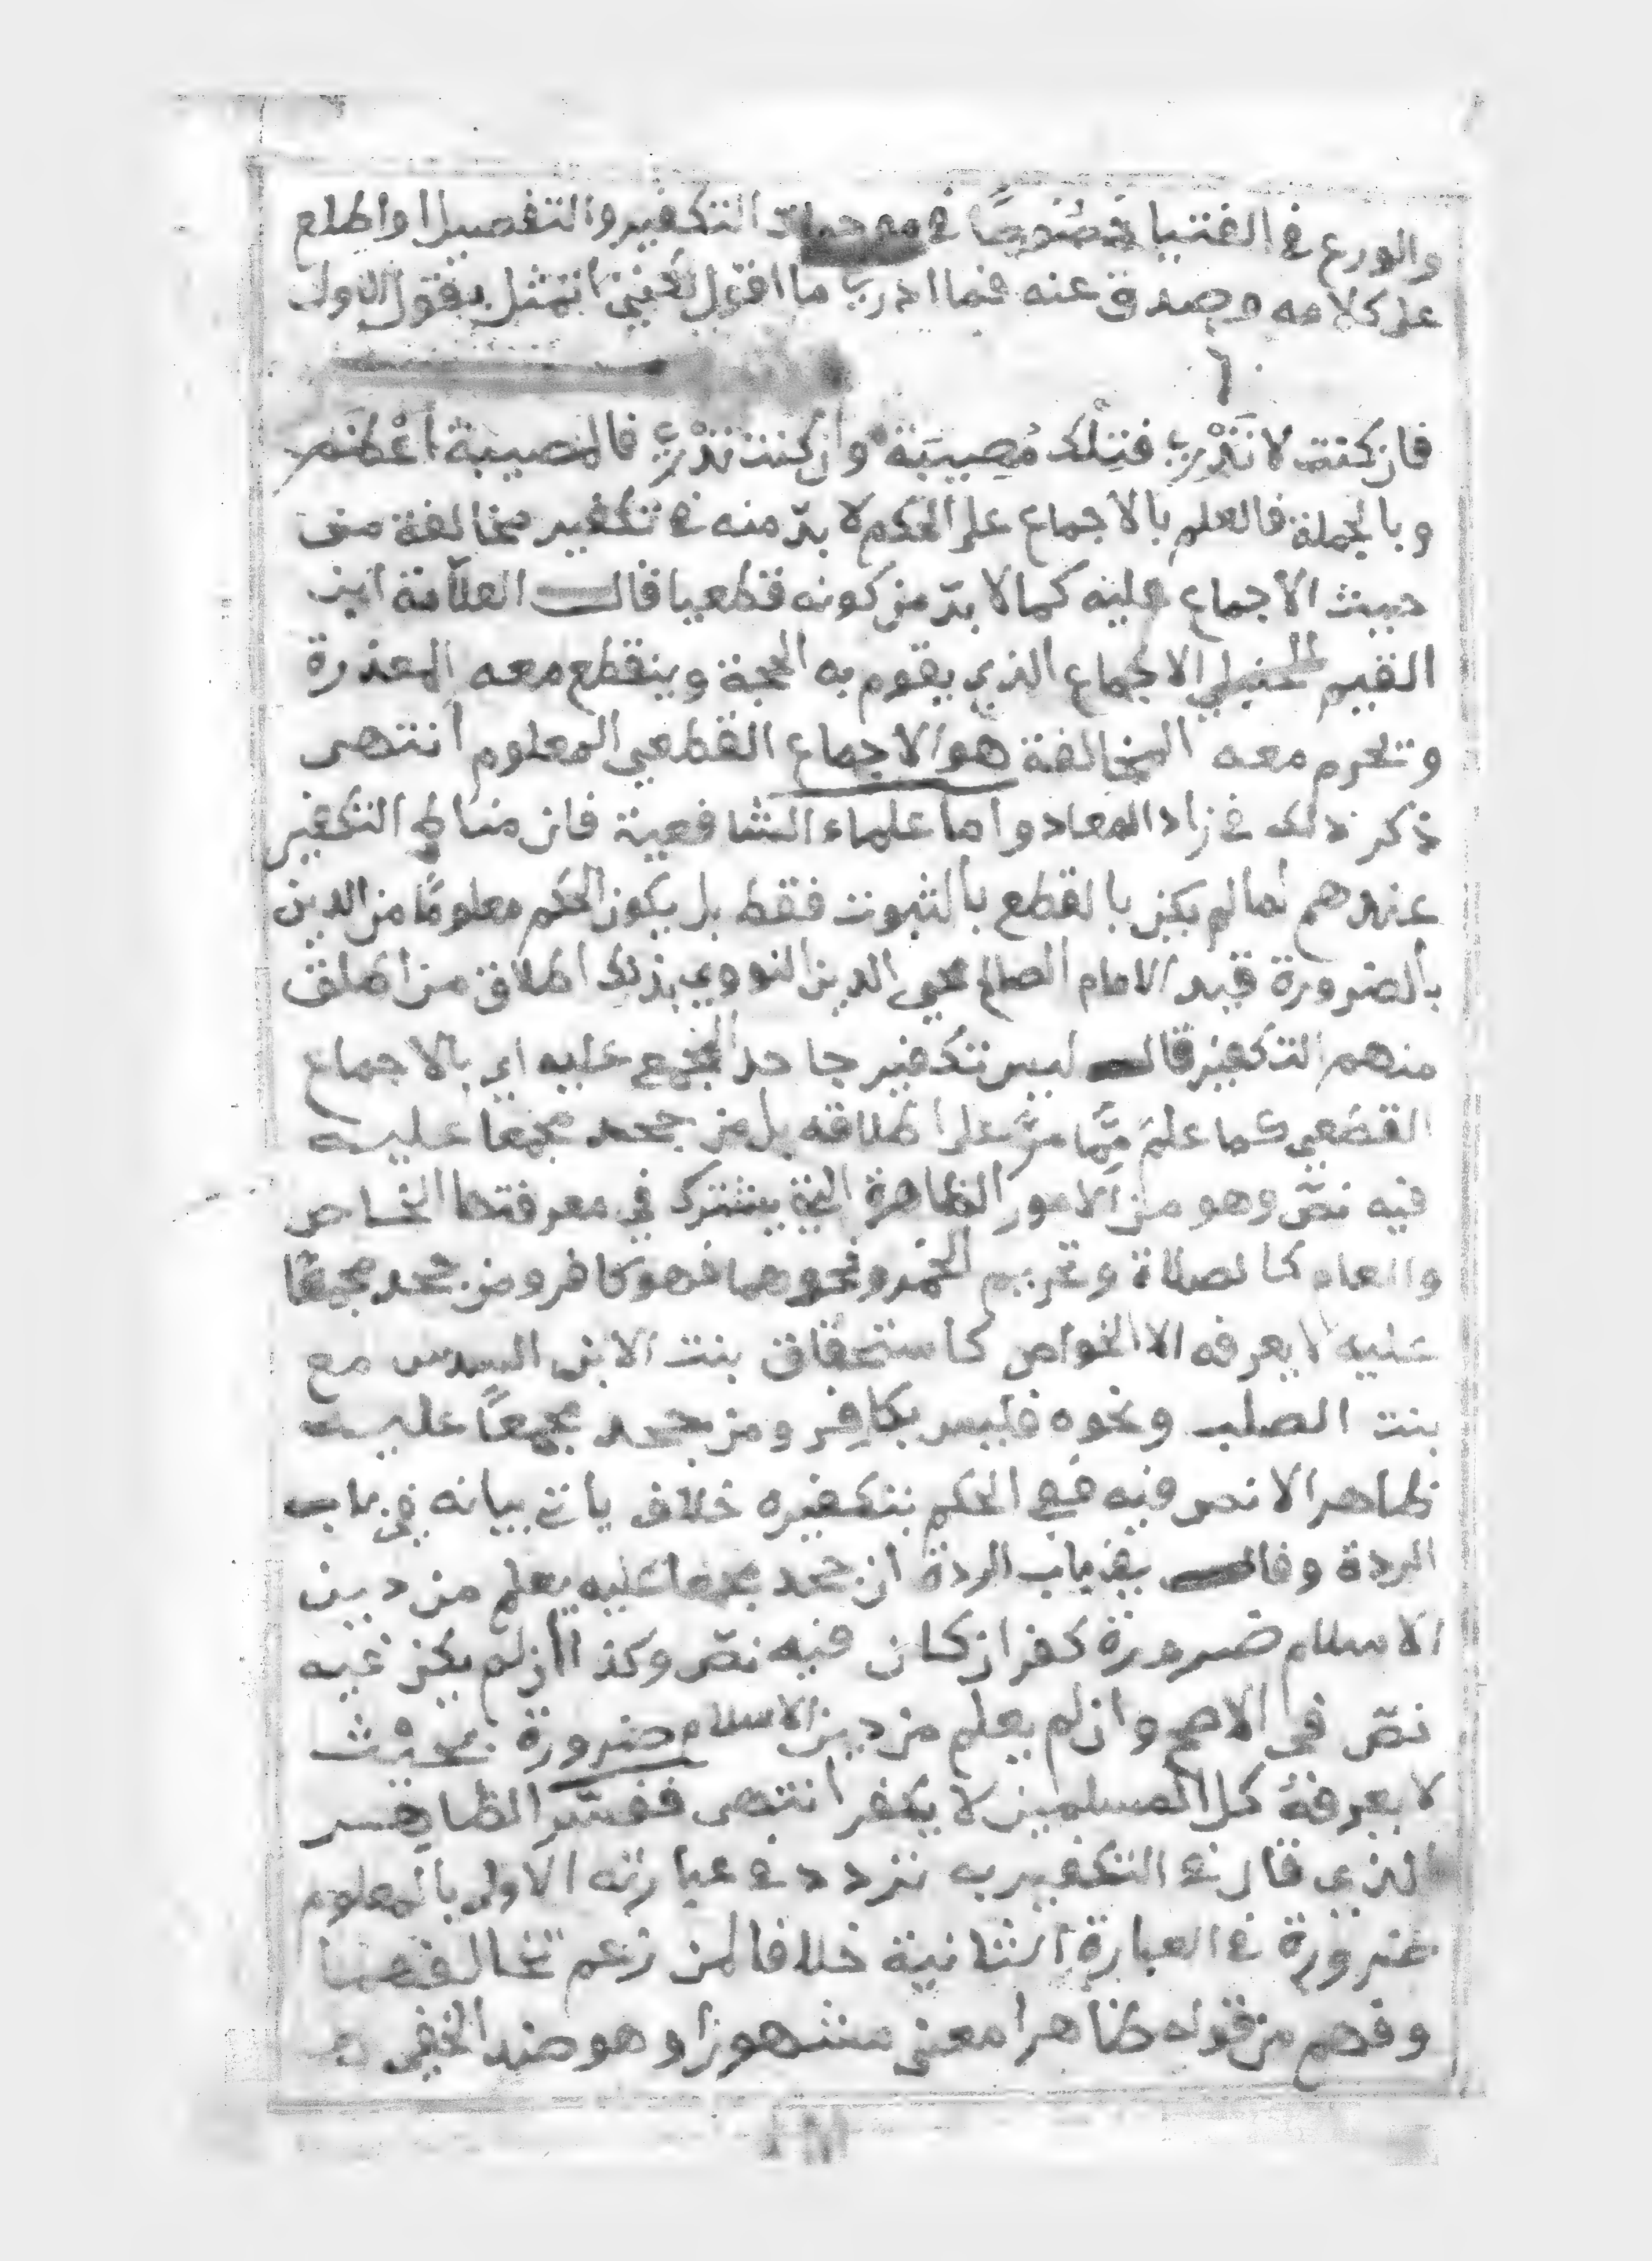 والورع في الفتيا خصُوصًا في موجبات التكفير والتفصيل واطلع
على كلامه وصدق عنه فما ادري ما اقول لكنني اتمثل بقول الاول
فان كنت لا تَدْرِي فتِلْك مُصِيبَة وان كنت تَدْرِي فالمصيبة أعْظَم
وبالجملة فالعلم بالاجماع على الحكم لا بدّ منه في تكفير مخالفة من
حيث الاجماع عليه كما لا بدّ من كونه قطعيا قال العلاّمة ابن
القيم الحنبلي الاجماع الذي يقوم به الحجة وينقطع معه المعذرة
وتحرم معه المخالفة هو الاجماع القطعي المعلوم انتهى
ذكر ذلك في زاد المعاد واما علماء الشافعية فان مناط التكفير
عندهم لما لم يكن بالقطع بالثبوت فقط بل يكون الحكم معلومًا من الدين
بالضرورة قيد الامام الصالح محي الدين النووي بذلك اطلاق من اطلق
منهم التكفير قال ليس تكفير جاحد المجمع عليه اي بالاجماع
القطعي كما علم ممَّا مرّ على اطلاقه بل من جحد مجمعا عليه
فيه نصّ وهو من الامور الظاهرة التي يشترك في معرفتها الخاص
والعام كالصلاة وتحريم الخمر ونحوهما فهو كافر ومن جحد مجمعًا
عليه لا يعرفه الا الخواص كاستحقاق بنت الابن السدس مع
بنت الصلب ونحوه فليس بكافِر ومن جحد مجمعاً عليه
ظاهرا لا نص فيه ففي الحكم بتكفيره خلاف ياتي بيانه في باب
الردة وقال في باب الردة ان جحد مجمعا عليه يعلم من دين
الاسلام ضرورة كفر ان كان فيه نصّ وكذا ان لم يكن فيه
نصّ في الاصح وان لم يعلم من دين الاسلام ضرورة بحيث
لا يعرفهُ كل المسلمين لا يكفر انتهى ففسّر الظاهِر
الذي قال في التكفير به تردد في عبارته الاولى بالمعلوم
ضرورة في العبارة الثانية خلافا لمن زعم تخالفهما
وفهم من قوله ظاهرا معنى مشهورا وهو ضد الخفي